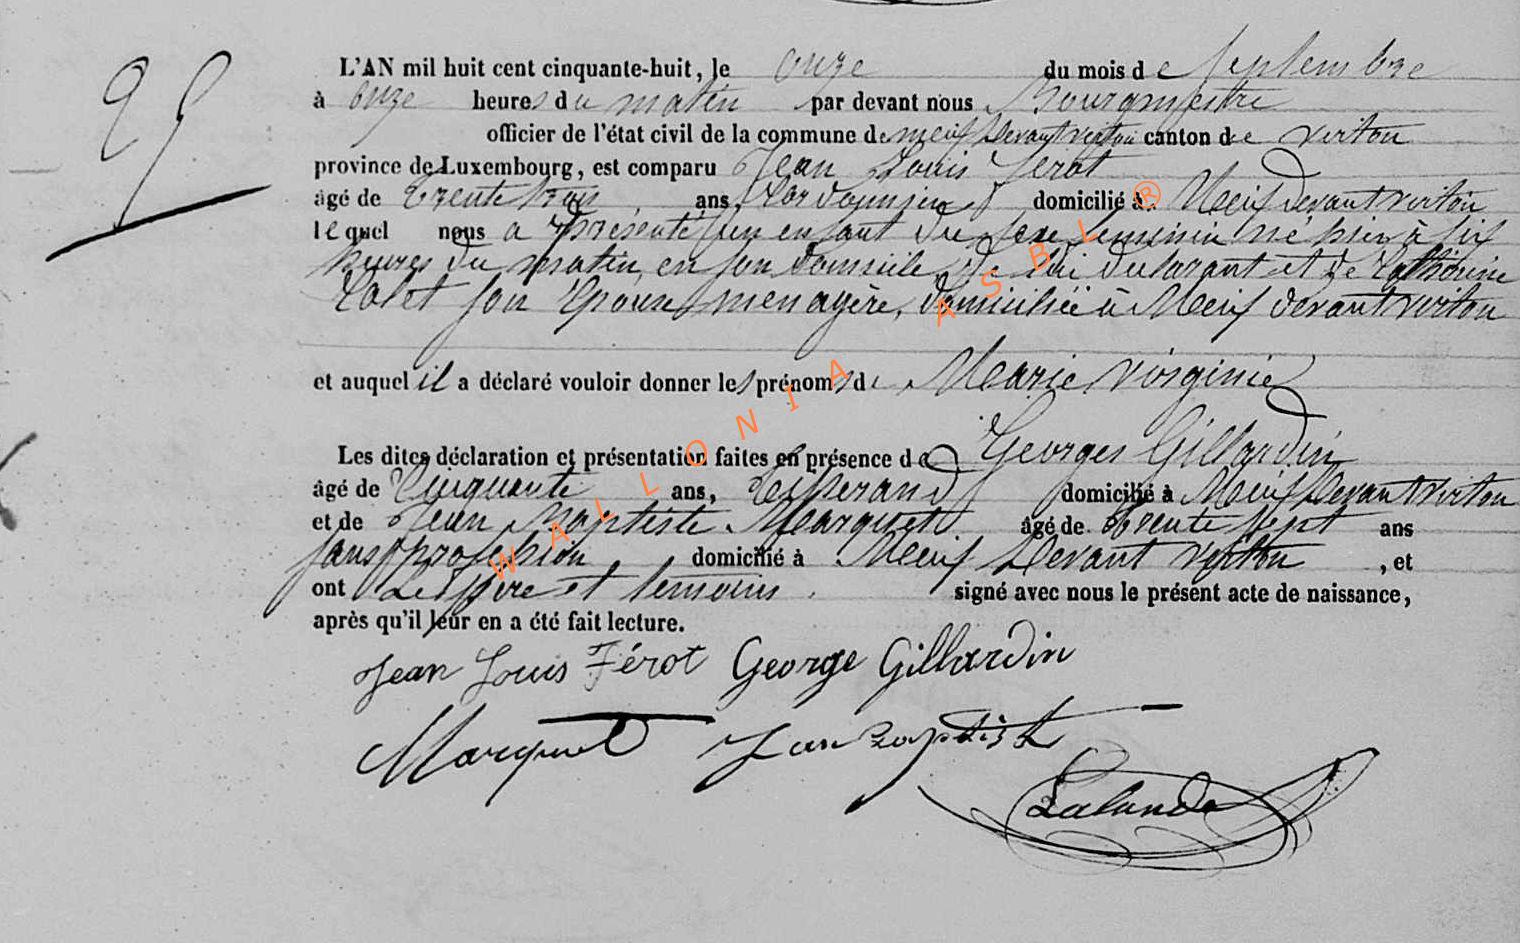 25
L'AN mil huit cent cinquante-huit, le onze du mois de Septembre
à onze heures du matin par devant nous Bourgmestre
officier de l'état civil de la commune de meix devant virton canton de virton
province de Luxembourg, est comparu Jean Louis Ferot
âgé de trente trois ans, Cordonnier domicilié à Meix devant virton
lequel nous a présenté un enfant du sexe feminin né hier à six
heures du matin en son domicile de lui declarant et de Catherine
son épouse menagère, domiciliée à Meix devant virton
et auquel il a déclaré vouloir donner les prénoms de Marie virginie
Les dites déclaration et présentation faites en présence de Georges Gillardin
âgé de Cinquante ans, Tisserand domicilié à Meix Devant virton
et de Jean Baptiste Marquet âgé de trente sept ans
sans profession domicilié à Meix Devant virton , et
ont Le père et temoins signé avec nous le présent acte de naissance,
après qu'il leur en a été fait lecture.
Jean Louis Férot George Gillardin
Marquet Jan Baptist
Lalande
WALLONIA ASBL ®